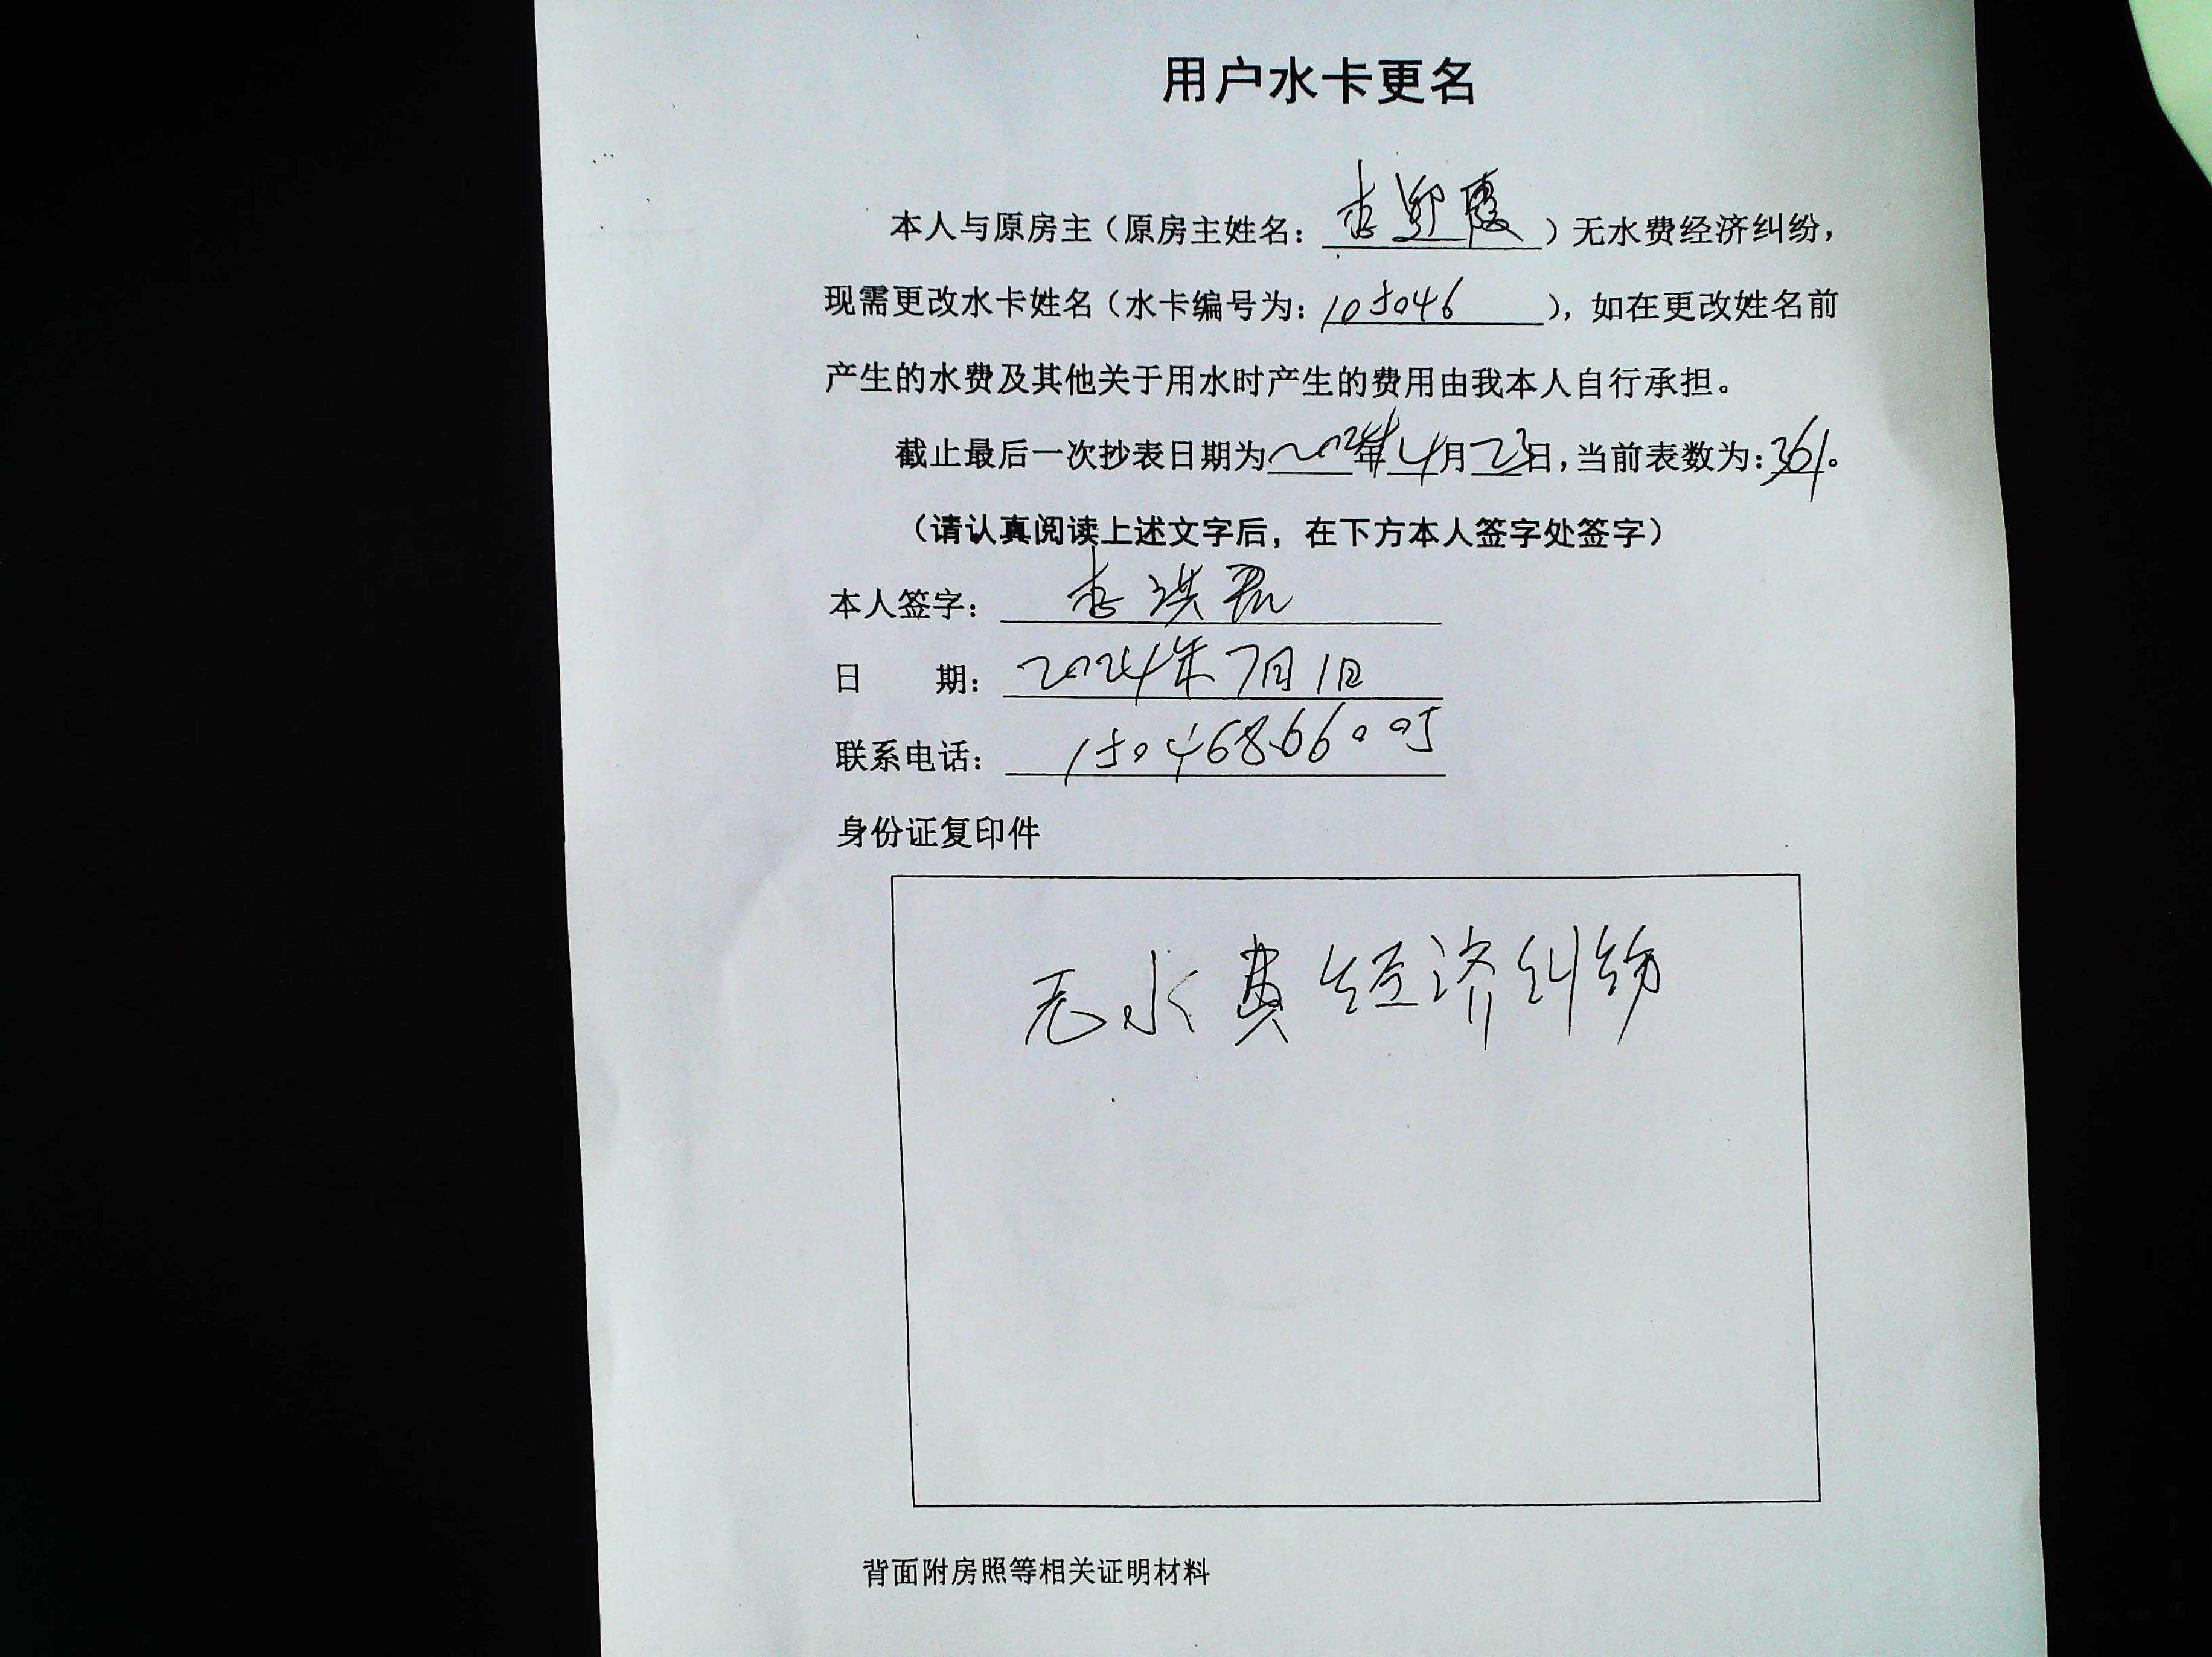 用户水卡更名
本人与原房主（原房主姓名：李迎霞）无水费经济纠纷，
现需更改水卡姓名（水卡编号为：105046），如在更改姓名前
产生的水费及其他关于用水时产生的费用由我本人自行承担。
截止最后一次抄表日期为2024年4月23日，当前表数为：361。
（请认真阅读上述文字后，在下方本人签字处签字）
本人签字：李洪
日　期：2024年7月1日
联系电话：15046866005
身份证复印件
无水费经济纠纷
背面附房照等相关证明材料